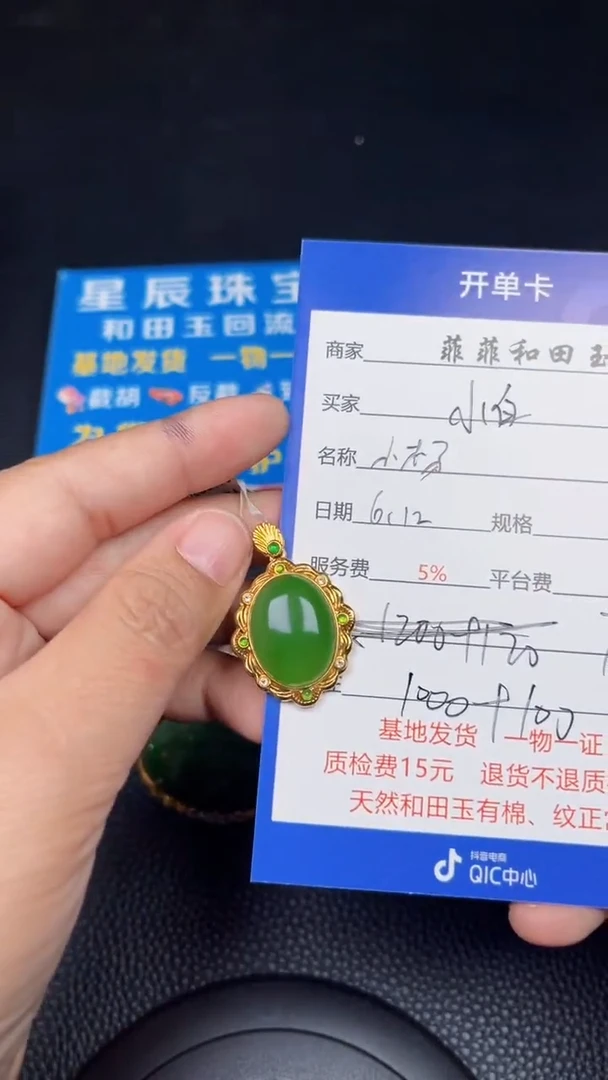 星辰珠宝
和田玉回流
基地发货 一物一
截胡
开单卡
商家 菲菲和田玉
买家 小白
名称
日期 6.12 规格
服务费 5% 平台费
1200+120
1000+100
基地发货 一物一证
质检费15元 退货不退质
天然和田玉有棉、纹正常
抖音电商
QIC中心